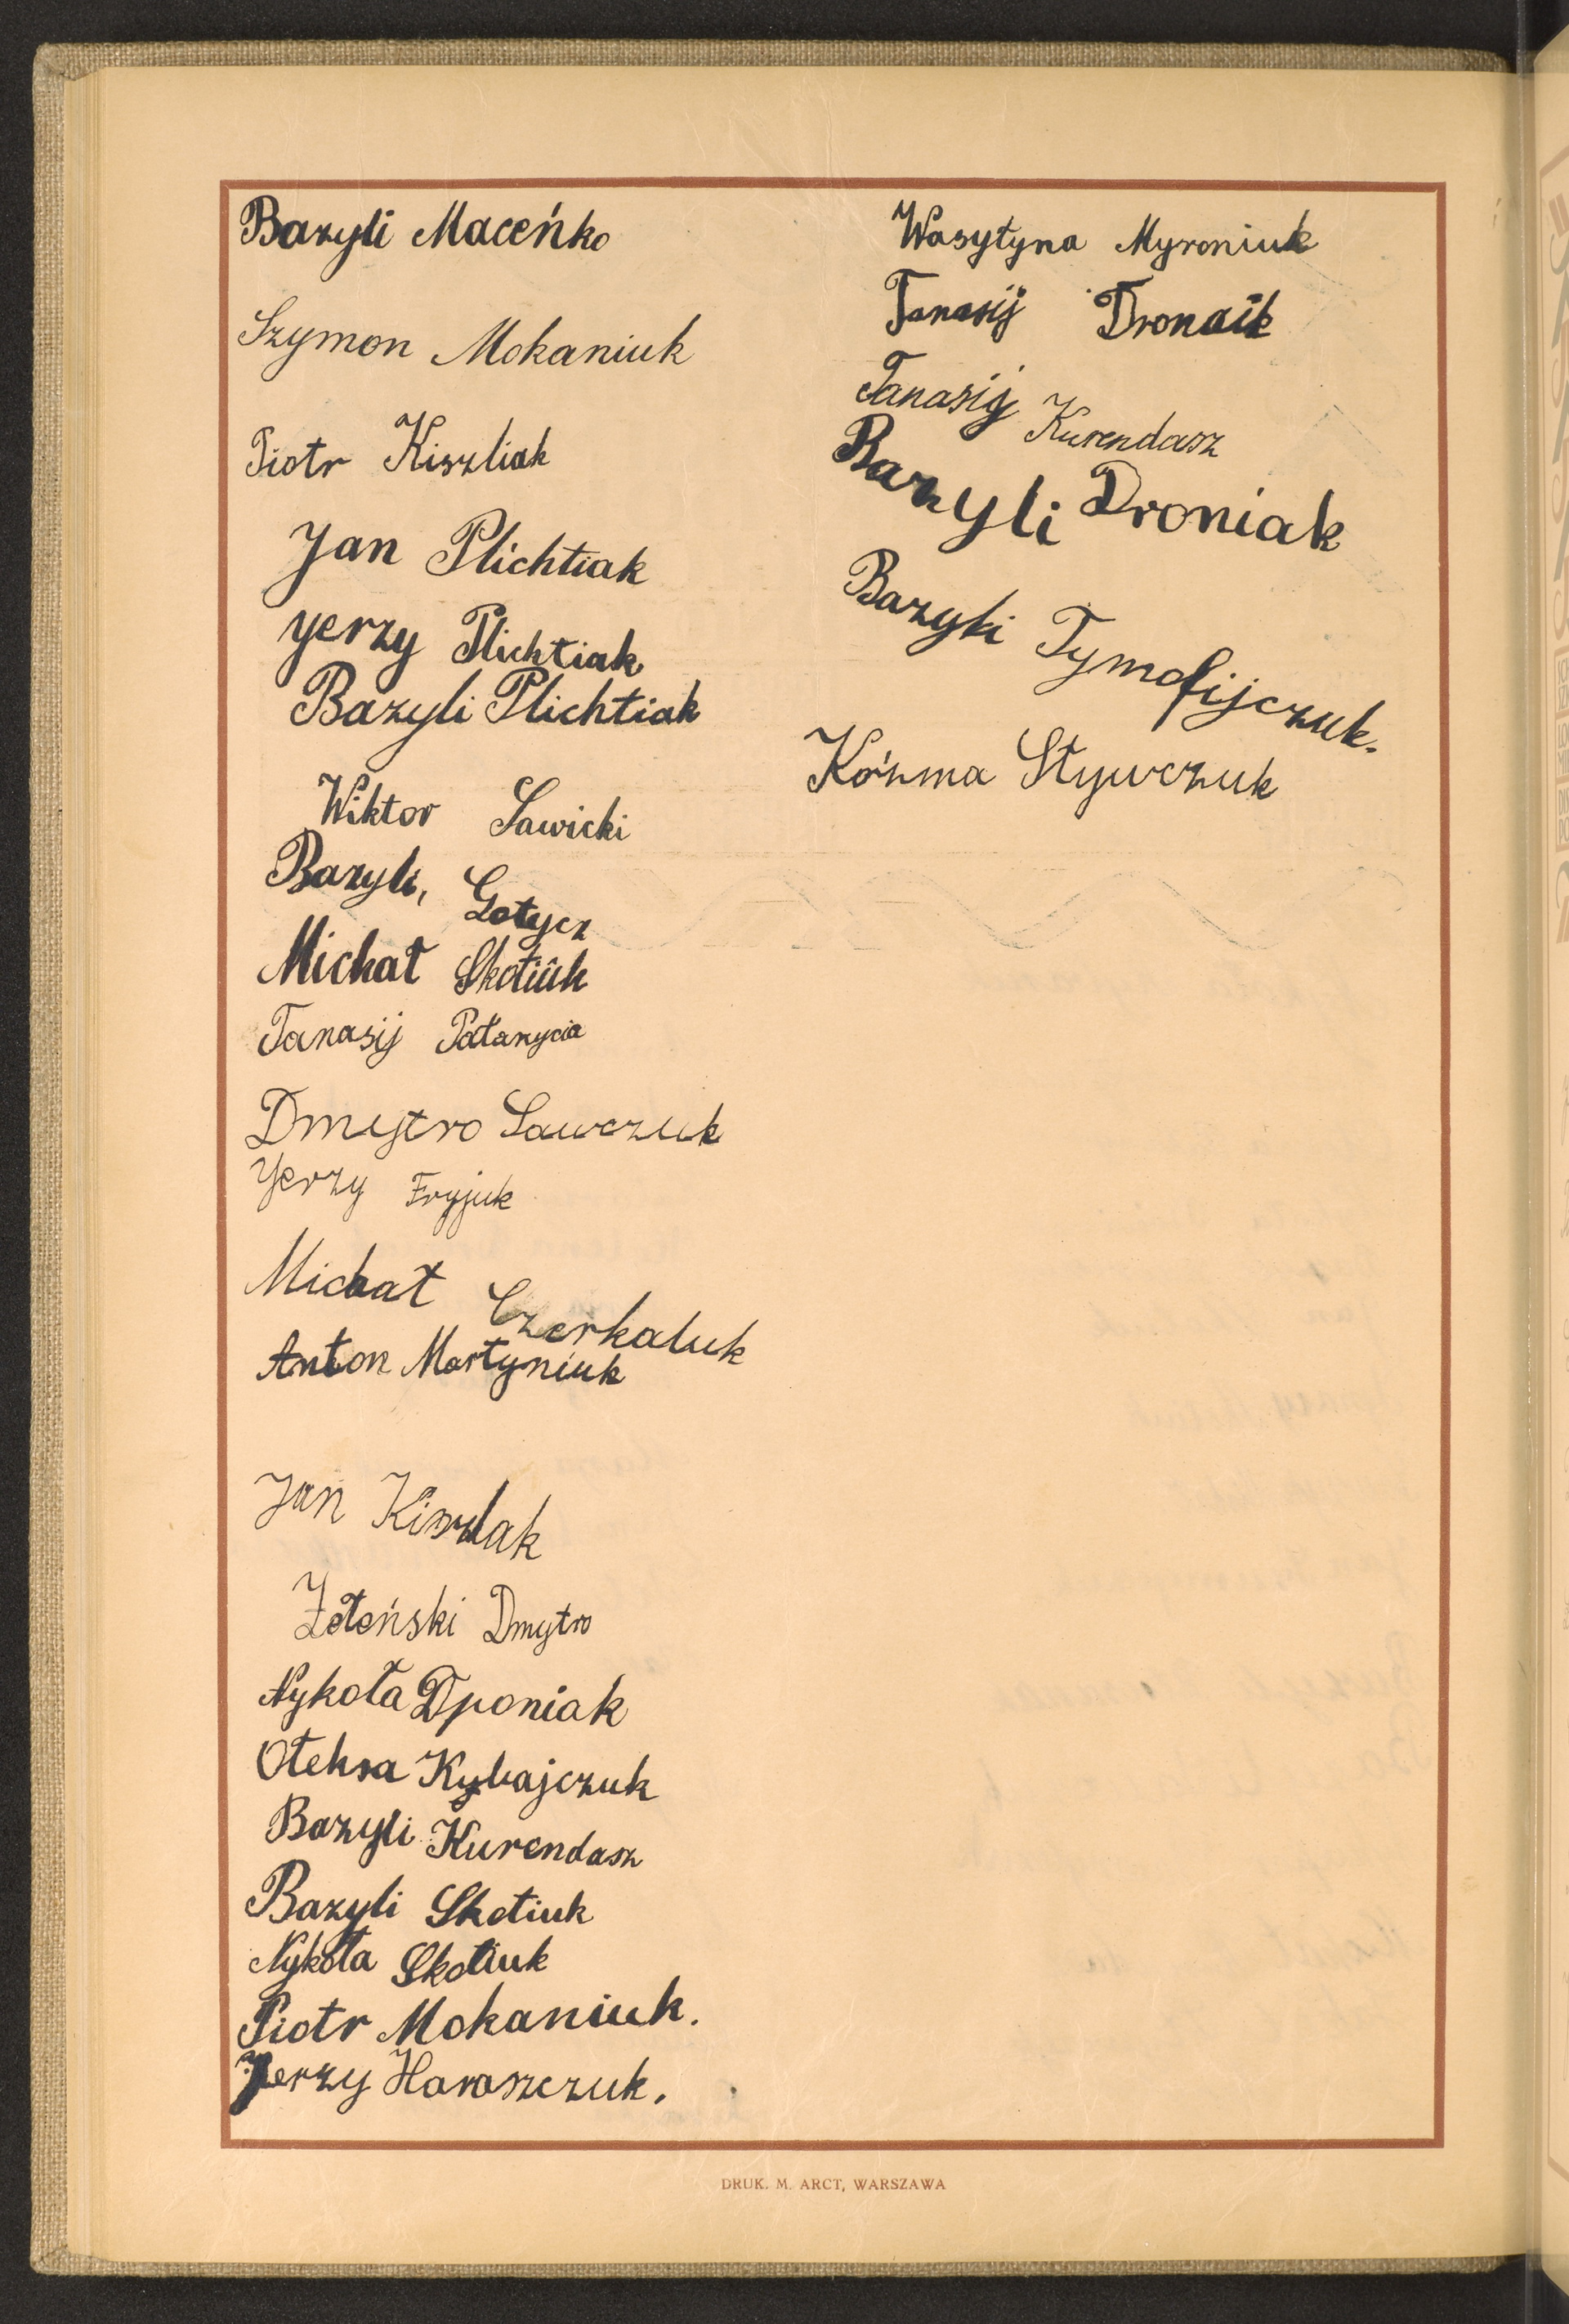 Bazyli Maceńko
Szymon Mokaniuk
Piotr Kiszliak
Jan Plichtiak
Jerzy Plichtiak
Bazyli Plichtiak
Wiktor Sawicki
Bazyli, Gotycz
Michał Skotiuk
Tanasij Pałarycia
Dmytro Sawczuk
Jerzy Fryjuk
Michał Czerkaluk
Anton Martyniuk
Jan Kiszlak
Zeleński Dmytro
Nykoła Dponiak
Ołeksa Kybajczuk
Bazyli Kurendasz
Bazyli Skotiuk
Nykoła Skotiuk
Piotr Mokaniuk.
Jerzy Haraszczuk.
Wasyłyna Myroniuk
Tanasij Dronaik
Tanasij Kurendasz
Bazyli Droniak
Bazyli Tymofijczuk.
Koźma Stywczuk
DRUK. M. ARCT, WARSZAWA